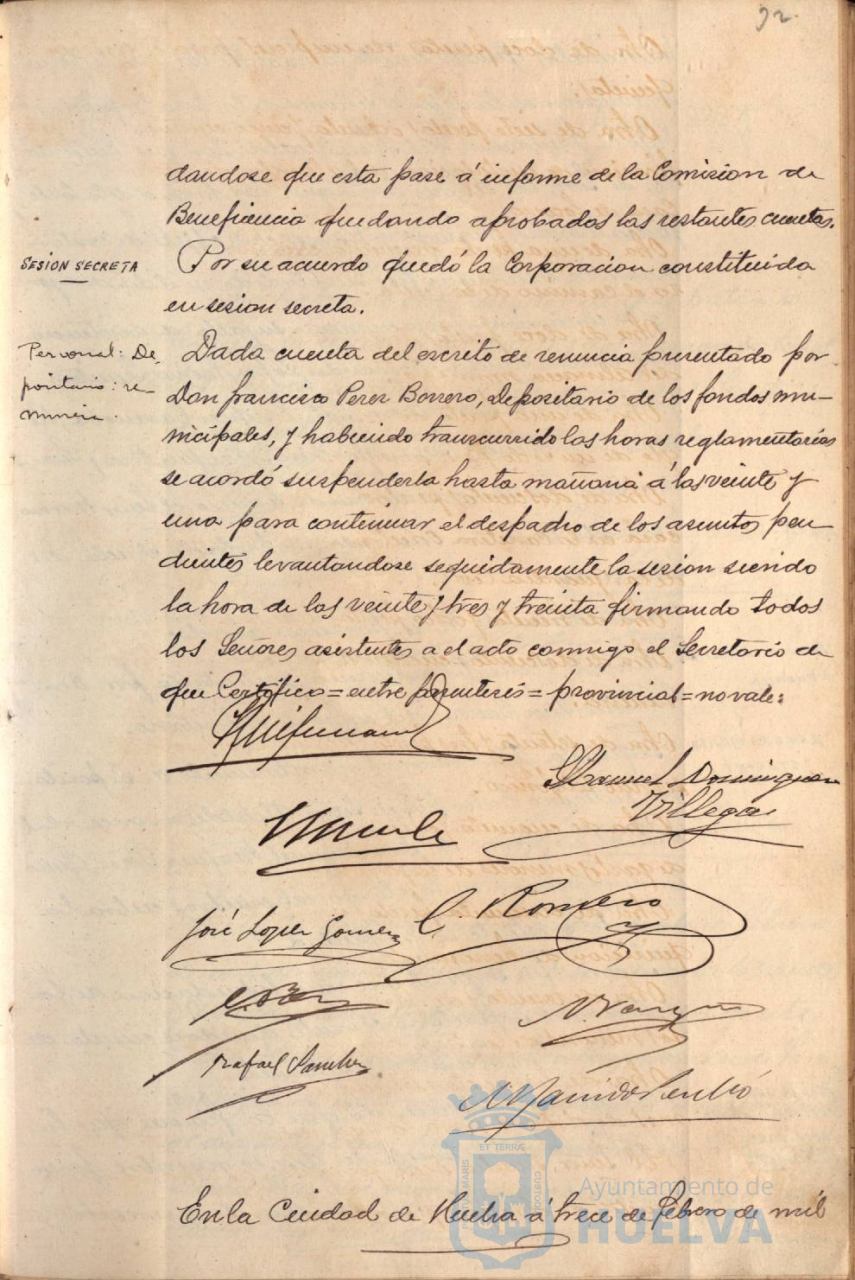 92.
dandose que esta pase á informe de la Comision de
Beneficencia quedando aprobados las restantes cuentas.
SESION SECRETA
Por su acuerdo quedó la Corporacion constituida
en sesion secreta.
Personal: De-
positario: re-
nuncia.
Dada cuenta del escrito de renuncia presentado por
Don Francisco Perez Borrero, Depositario de los fondos mu-
nicipales, y habiendo transcurrido las horas reglamentarias
se acordó suspenderla hasta mañana á las veinte y
una para continuar el despacho de los asuntos pen-
dientes levantandose seguidamente la sesion siendo
la hora de las veinte y tres y treinta firmando todos
los Señores asistentes a el acto conmigo el Secretario de
que Certifico = entre parentesis = provincial = no vale:
Manuel Dominguez
Villegas
José Lopez Gomez
C. Romero
Rafael Sanchez
ET TERRÆ
Ayuntamiento de
HUELVA
En la Ciudad de Huelva á trece de Febrero de mil